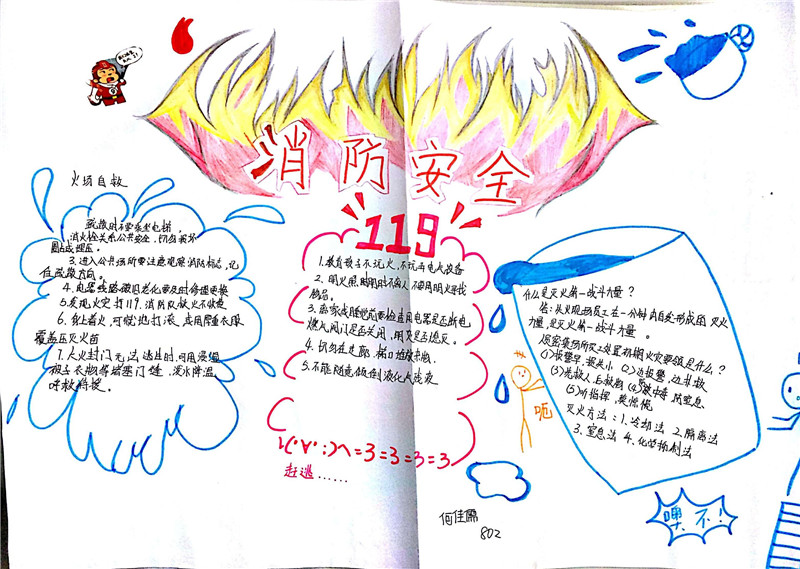 消防安全
119
火场自救
逃散时不要乘坐电梯.
消火栓关系公共安全，切勿损坏
圈占或埋压。
3.进入公共场所要注意观察消防标志，记
住疏散方向。
4.电器线路破旧老化要及时修理更换
5.发现火灾打119.消防队救火不收费
6.身上着火，可就地打滚，或用厚重衣服
覆盖压灭火苗
7.大火封门无法逃生时，可用浸湿
被子衣物等堵塞门缝，泼水降温
呼救待援。
1.教育孩子不玩火，不玩弄电火设备
2.
物品。
3.
4.切勿在走廊.梯口
5.不能随意倾倒液化气残液
=3=3=3=3
赶逃……
什么是灭火第一战斗力量？
答：从火现场员工在一分钟内自发形成的灭火
力量，是灭火第一战斗力量。
人员密集场所灾上处置初期火灾要领是什么？
(1)报警早、损失小 (2)边报警，边扑救
(3)先救人，后救物 (4)防中毒 防窒息
(5)听指挥，莫慌慌
灭火方法：1.冷却法 2.隔离法
3.窒息法 4.化学抑制法
呃
噢、不！
何佳儒
802